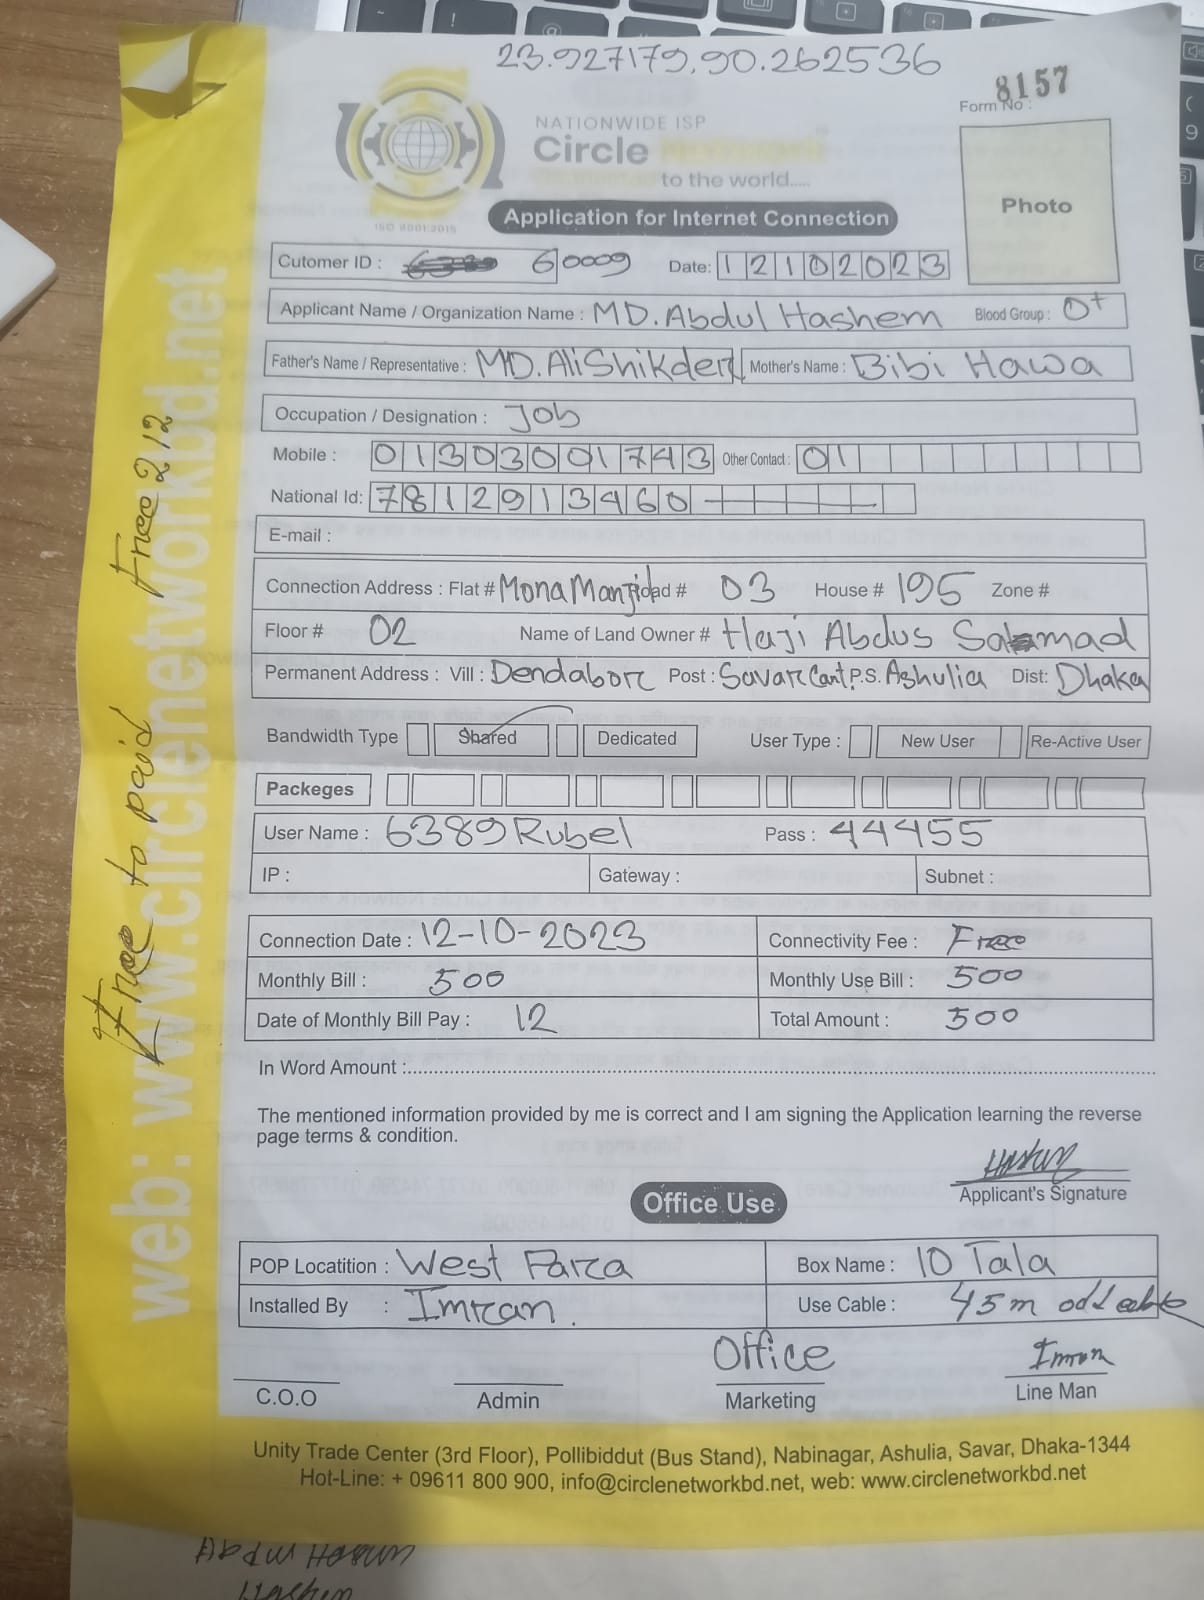 23.927179,90.262536
8157
Form No :
NATIONWIDE ISP
Circle
to the world.....
ISO 9001:2015
Photo
Application for Internet Connection
Cutomer ID : 60009 Date: 12102023
Applicant Name / Organization Name : MD. Abdul Hashem Blood Group : O+
Father's Name / Representative : MD. Ali Shikder Mother's Name : Bibi Hawa
Occupation / Designation : Job
Mobile : 01303001743 Other Contact : 01
National Id: 7812913460
E-mail :
Connection Address : Flat # Mona Manjil Road # 03 House # 195 Zone #
Floor # 02 Name of Land Owner # Haji Abdus Samad
Permanent Address : Vill : Dendabor Post : Savar Cant P.S. Ashulia Dist: Dhaka
Bandwidth Type Shared Dedicated User Type : New User Re-Active User
Packeges
User Name : 6389Rubel Pass : 44455
IP : Gateway : Subnet :
Connection Date : 12-10-2023 Connectivity Fee : Free
Monthly Bill : 500 Monthly Use Bill : 500
Date of Monthly Bill Pay : 12 Total Amount : 500
In Word Amount :
The mentioned information provided by me is correct and I am signing the Application learning the reverse
page terms & condition.
Applicant's Signature
Office Use
POP Locatition : West Para Box Name : 10 Tala
Installed By : Imran. Use Cable : 45m odd cable
Office Imran
C.O.O Admin Marketing Line Man
Unity Trade Center (3rd Floor), Pollibiddut (Bus Stand), Nabinagar, Ashulia, Savar, Dhaka-1344
Hot-Line: + 09611 800 900, info@circlenetworkbd.net, web: www.circlenetworkbd.net
web: www.circlenetworkbd.net
Free to paid Free 212
Hashem